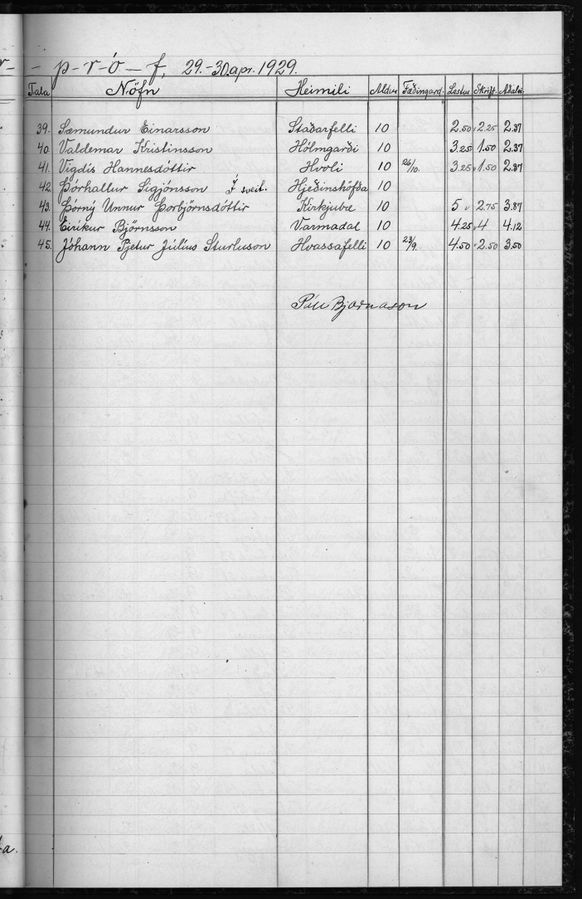 - p - r - ó - f, 29.-30. apr. 1929.
Tala Nöfn Heimili Aldur Fæðingard. Lestur Skrift Aðaleink
39. Sæmundur Einarsson Staðarfelli 10 2.50 2.25 2.37
40. Valdemar Kristinsson Hólmgarði 10 3.25 1.50 2.37
41. Vigdís Hannesdóttir Hvoli 10 26/10. 3.25 1.50 2.37
42. Þórhallur Sigjónsson Í sveit. Hjeðinshöfða 10
43. Þórný Unnur Þorbjörnsdóttir Kirkjubæ 10 5 2.75 3.87
44. Eiríkur Björnsson Varmadal 10 4.25 4 4.12
45. Jóhann Pjetur Júlíus Sturluson Hvassafelli 10 23/9. 4.50 2.50 3.50
Páll Bjarnason
a.